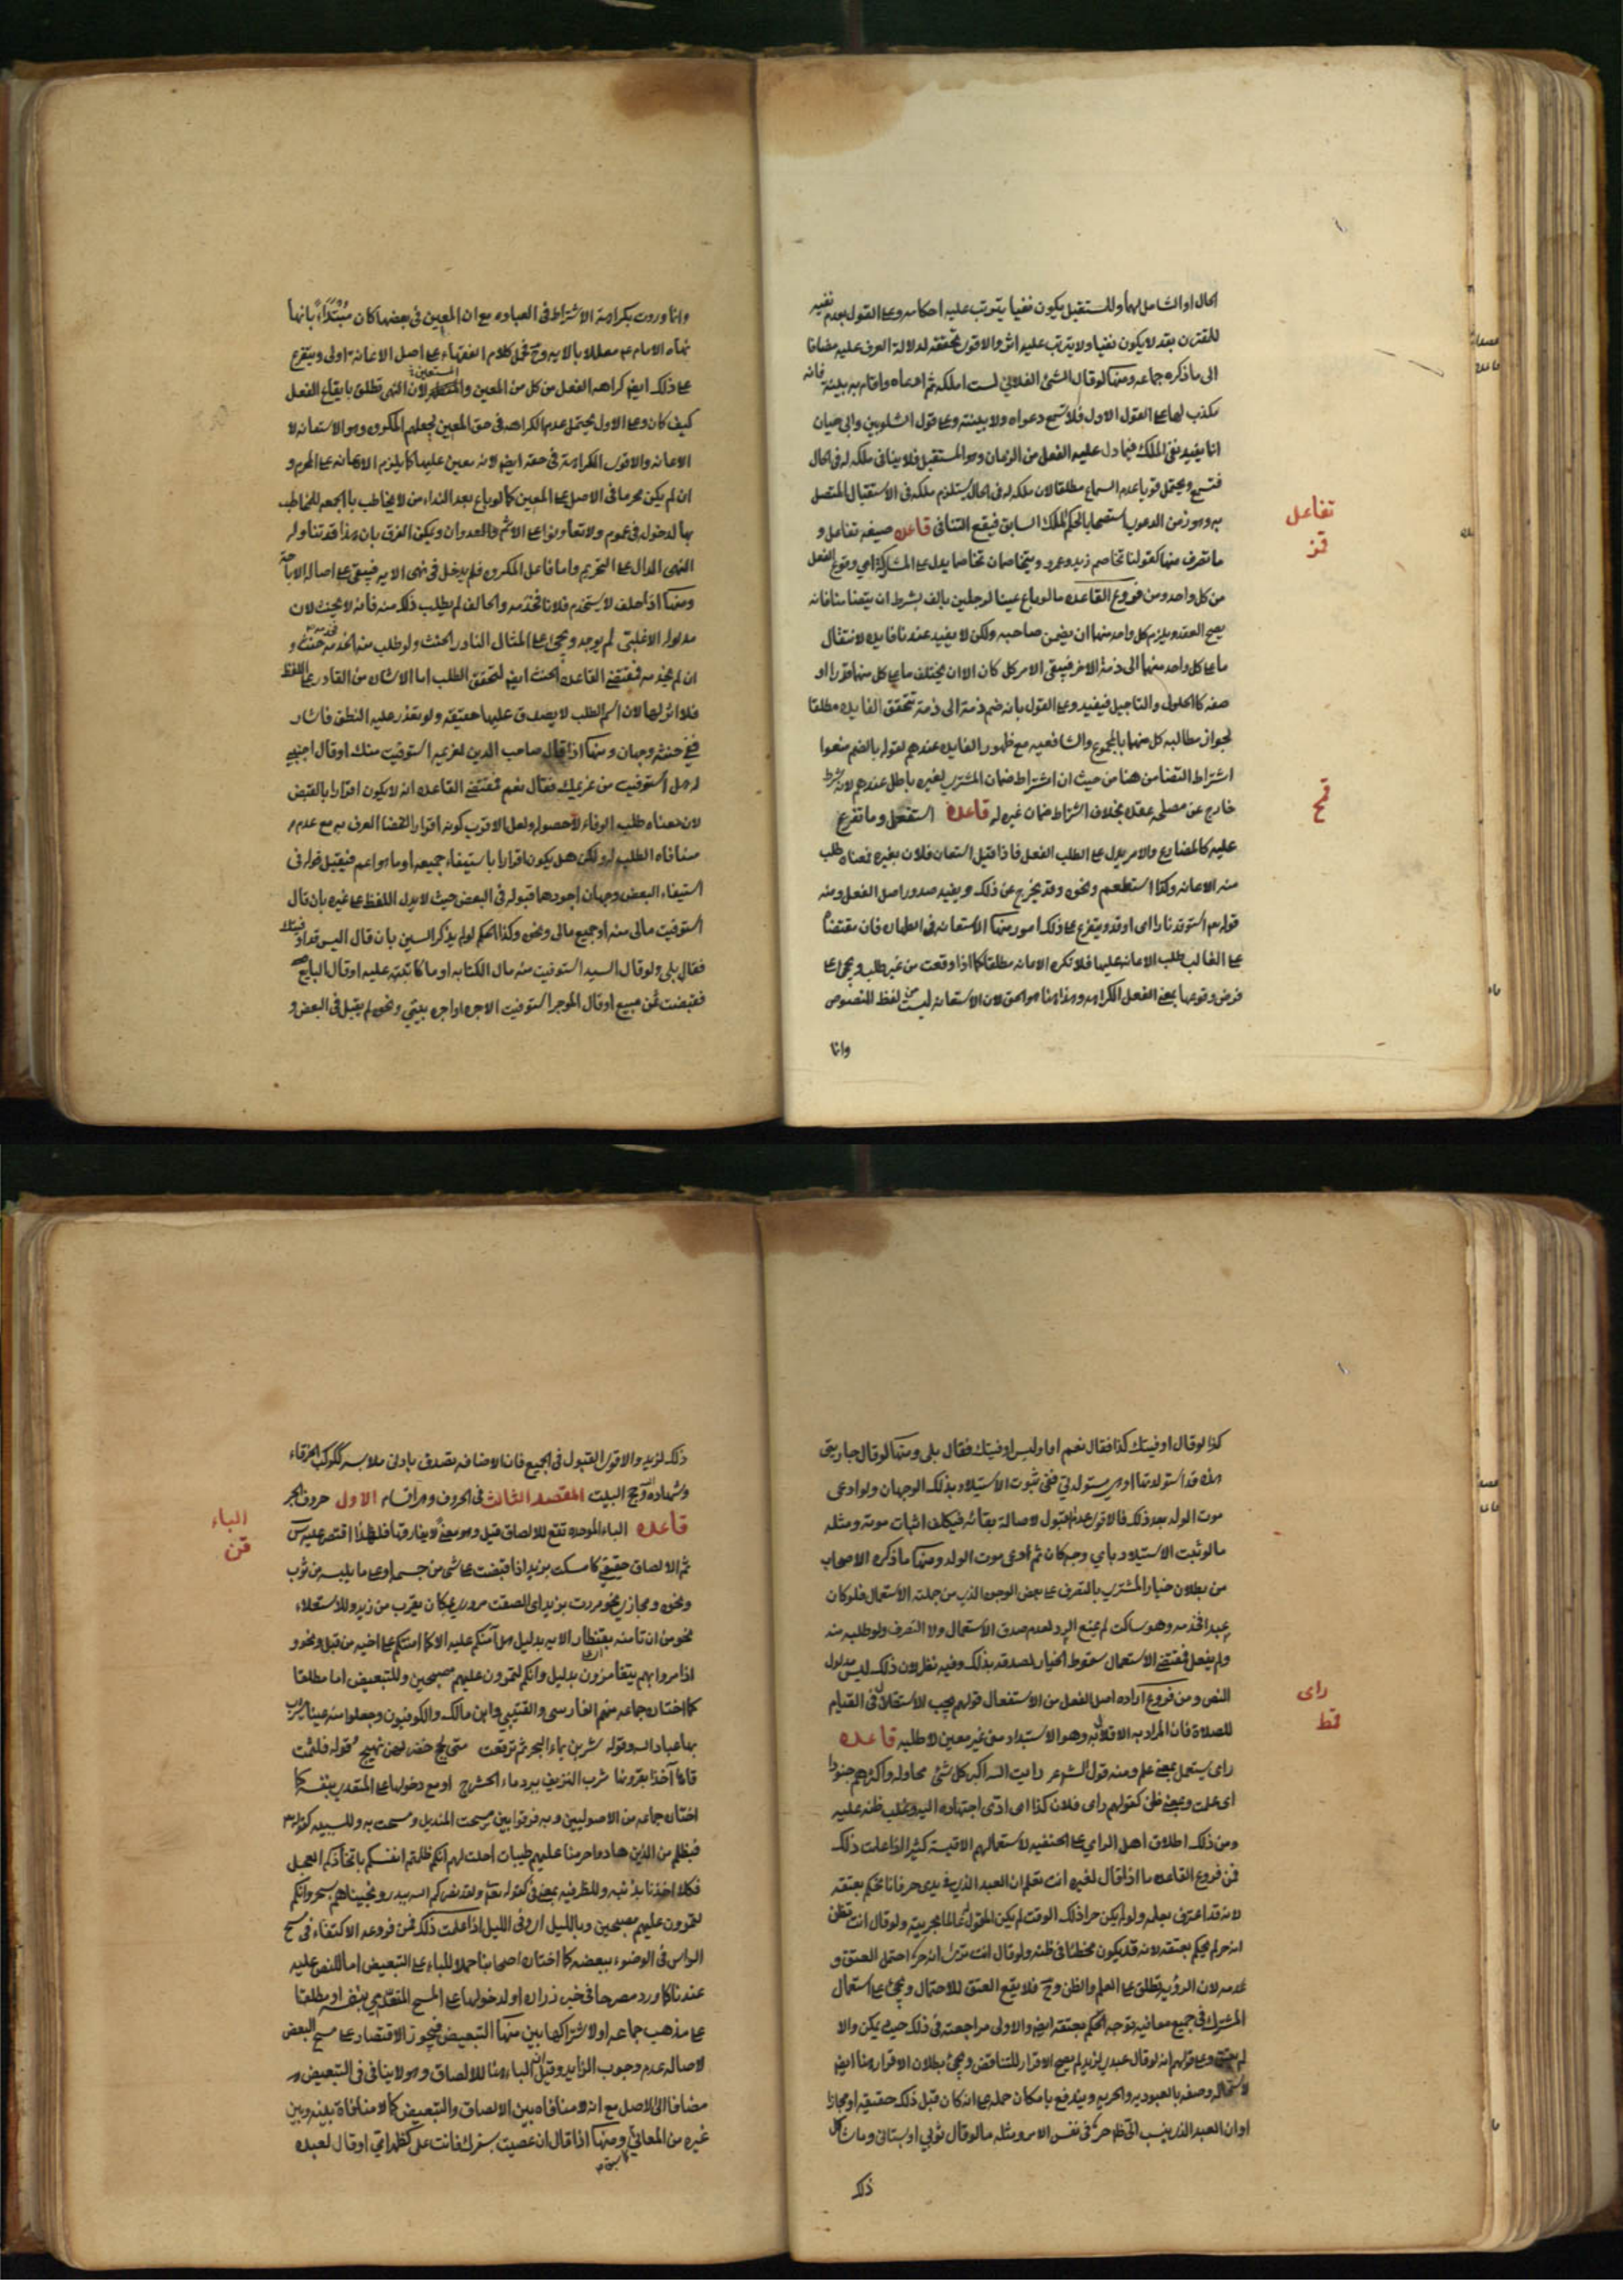 الحال او الشامل لهما وللمستقبل يكون نفيا يترتب عليه احكامه وعلى القول بعدم نفيه
للمقترن بقد لا يكون نفيا ولا يترتب عليه اثر والاقوى تحققه لدلالة العرف عليه مضافا
الى ما ذكره جماعه ومنها لو قال الشئ الفلاني لست املكه ثم ادعاه واقام به بينة فانه
مكذب لها على القول الاول فلا تسمع دعواه ولا بينته وعلى قول الشلوبين وابي حيان
انما يفيد نفى الملك فيما دل عليه الفعل من الزمان وهو المستقبل فلا ينافى ملكه له فى الحال
فتسمع ويحتمل قويا عدم السماع مطلقا لان ملكه له فى الحال يستلزم ملكه فى الاستقبال المتصل
به وهو زمن الدعوى استصحابا لحكم الملك السابق فيقع التنافى قاعده صيغه تفاعل و
تفاعل
قز
ما تصرف منها كقولنا تخاصم زيد وعمرو ويتخاصمان تخاصما يدل على المشاركة اى وقوع الفعل
من كل واحد ومن فروع القاعده ما لو باع عينا لرجلين بالف بشرط ان يتضامنا فانه
يصح العقد ويلزم كل واحد منهما ان يضمن صاحبه ولكن لا يفيد عندنا فايده لانتقال
ما على كل واحد منهما الى ذمة الاخر فيبقى الامر كل كان الا ان يختلف ما على كل منهما قدرا او
صفه كالحلول والتاجيل فيفيد وعلى القول بانه ضم ذمة الى ذمة تتحقق الفايده مطلقا
لجواز مطالبه كل منهما بالمجموع والشافعيه مع ظهور الفايده عندهم لقوله بالضم منعوا
اشتراط التضامن هنا من حيث ان اشتراط ضمان المشترى لغيره باطل عندهم لانه شرط
خارج عن مصلحه عقده بخلاف اشتراط ضمان غيره له قاعده استفعل وما تفرع
قح
عليه كالمضارع والامر يدل على الطلب الفعل فاذا قيل استعان فلان بغيره فمعناه طلب
منه الاعانه وكذا استطعم ونحوه وقد يخرج عن ذلك ويفيد صدور اصل الفعل ومنه
قولهم استوقد نارا اى اوقد ويتفرع على ذلك امور منها الاستعانه فى الطهاره فان مقتضاه
على الغالب طلب الاعانه عليها فلا تكره الاعانه مطلقا كما اذا وقعت من غير طلب ويجئ على
فرض وقوعها بمعنى الفعل الكراهه وهذا هنا هو الحق لان الاستعانه ليست من لفظ المنصوص
وانما
وانما وردت بكراهة الاشتراط فى العباده مع ان المعين فى بعضها كان مبتداء بانها
نهاه الامام عم معللا بالايه وح فحمل كلام الفقهاء على اصل الاعانه اولى ويتفرع
على ذلك ايضا كراهه الفعل من كل من المعين والمستعين لان النهى تطلق بايقاع الفعل
كيف كان وعلى الاول يحتمل عدم الكراهه فى حق المعين لجعلهم المكروه هو الاستعانه لا
الاعانه والاقوى الكراهة فى حقه ايضا لانه معين عليها كما يلزم الاعانه على المحرم و
ان لم يكن محرما فى الاصل على المعين كما لو باع بعد النداء من لا يخاطب بالجمعه للمخاطب
بها لدخوله فى عموم ولا تعاونوا على الاثم والعدوان ويمكن الفرق بان هذا قد تناوله
النهى الدال على التحريم واما فاعل المكروه فلم يدخل فى نهى الايه فيبقى على اصاله الاباحة
ومنها اذا حلف لا يستخدم فلانا فخدمه والحالف لم يطلب ذلك منه فانه لا يحنث لان
مدلوله الاغلبى لم يوجد ويجئ على المثال النادر الحنث ولو طلب منه الخدمه فخدمه حنث و
ان لم يخدمه فمقتضى القاعده الحنث ايضا لتحقق الطلب اما الاشاره من القادر على اللفظ
فلا اثر لها لان اسم الطلب لا يصدق عليها حقيقه ولو تعذر عليه النطق فاشار
ففى حنثه وجهان ومنها اذا قال صاحب الدين لغريمه استوفيت منك او قال اجنبى
له هل استوفيت من غريمك فقال نعم فمقتضى القاعده انه لا يكون اقرارا بالقبض
لان معناه طلب الوفاء لا حصوله ولعل الاقرب كونه اقرارا لقضا العرف به مع عدم
منافاه الطلب له ولكن هل يكون اقرارا باستيفاء جميعه او ما هو اعم فيقبل قوله فى
استيفاء البعض وجهان اجودهما قبوله فى البعض حيث لا يدل اللفظ على غيره بان قال
استوفيت مالى منه او جميع مالى ونحوه وكذا الحكم لو لم يذكر السين بان قال اليس قد اوفيتك
فقال بلى ولو قال السيد استوفيت منه مال الكتابه او ما كاتبته عليه او قال البايع
قبضت ثمن مبيع او قال الموجر استوفيت الاجره او اجره بيتى ونحوه لم يقبل فى البعض و
كذا لو قال اوفيتك كذا فقال نعم اما او ليس اوفيتك فقال بلى ومنها لو قال جاريتى
هذه قد استولدتها او هى مستولدتى ففى ثبوت الاستيلاد بذلك الوجهان ولو ادعى
موت الولد بعد ذلك فالاقوى عدم القبول لاصالة بقائه فيكلف اثبات موته ومثله
ما لو ثبت الاستيلاد باى وجه كان ثم ادعى موت الولد ومنها ما ذكره الاصحاب
من بطلان خيار المشترى بالتصرف على بعض الوجوه الذى من جملته الاستعمال فلو كان
عبدا فخدمه وهو ساكت لم يمنع الرد لعدم صدق الاستعمال ولا التصرف ولو طلبه منه
ولم يفعل فمقتضى الاستعمال سقوط الخيار لصدقه بذلك وفيه نظر لان ذلك ليس مدلول
النص ومن فروع اراده اصل الفعل من الاستفعال قولهم يجب الاستقلال فى القيام
راى
قط
للصلاة فان المراد به الاقلال به وهو الاستبداد من غير معين لا طلبه قاعده
راى يستعمل بمعنى علم ومنه قول الشاعر رايت الله اكبر كل شئ محاوله واكثرهم جنودا
اى علمت وبمعنى ظن كقولهم راى فلان كذا اى ادى اجتهاده اليه وغلب ظنه عليه
ومن ذلك اطلاق اهل الراى على الحنفيه لاستعمالهم الاقيسة كثيرا اذا علمت ذلك
فمن فروع القاعده ما اذا قال لغيره انت تعلم ان العبد الذى فى يدى حر فانا نحكم بعتقه
لانه قد اعترف بعلمه ولو لم يكن حرا ذلك الوقت لم يكن المقول عالما بحريته ولو قال انت تظن
انه حر لم يحكم بعتقه لانه قد يكون مخطئا فى ظنه ولو قال انت ترى انه حر احتمل العتق و
عدمه لان الرؤيه تطلق على العلم والظن وح فلا يقع العتق للاحتمال ويجئ على استعمال
المشترك فى جميع معانيه توجه الحكم بعتقه ايضا والاولى مراجعته فى ذلك حيث يمكن والا
لم يعتق وعلى قولهم انه لو قال عبدى لزيد لم يصح الاقرار للتناقض ويجئ بطلان الاقرار هنا ايضا
لاستحاله وصفه بالعبوديه والحريه ويندفع بامكان حمله على انه كان قبل ذلك حقيقه او مجازا
او ان العبد الذى ينسب الى ظاهر حر فى نفس الامر ومثله ما لو قال ثوبى او بستانى وما شاكل
ذلك
ذلك لزيد والاقوى القبول فى الجميع فان الاضافه تصدق بادنى ملابسه ككوكب الخرقاء
وشهادة الله وحج البيت المقصد الثالث فى الحروف وهو اقسام الاول حروف الجر
الباء
قى
قاعده الباء الموحده تقع للالصاق قيل وهو معنى لا يفارقها فلهذا اقتصر عليه س
ثم الالصاق حقيقى كامسكت بزيد اذا قبضت على شئ من جسمه او على ما يلبسه من ثوب
ونحوه ومجازى نحو مررت بزيد اى الصقت مرورى بمكان يقرب من زيد وللاستعلاء
نحو من ان تامنه بقنطار الايه بدليل هل آمنكم عليه الا كما امنتكم على اخيه من قبل ونحو و
اذا مروا بهم يتغامزون بدليل وانكم لتمرون عليهم مصبحين وللتبعيض اما مطلقا
كما اختاره جماعه منهم الفارسى والقتيبى وابن مالك والكوفيون وجعلوا منه عينا يشرب
بها عباد الله وقوله شربن بماء البحر ثم ترفعت متى لجج خضر لهن نئيج وقوله فلثمت
فاها آخذا بقرونها شرب النزيف ببرد ماء الحشرج او مع دخولها على المتعدى بنفسه كما
اختاره جماعه من الاصوليين وبه فرقوا بين مسحت المنديل ومسحت به وللسببيه كقوله تعالى
فبظلم من الذين هادوا حرمنا عليهم طيبات احلت لهم انكم ظلمتم انفسكم باتخاذكم العجل
فكلا اخذنا بذنبه وللظرفيه بمعنى فى كقوله تعالى ولقد نصركم الله ببدر ونجيناهم بسحر وانكم
لتمرون عليهم مصبحين وبالليل اى وفى الليل اذا علمت ذلك فمن فروعه الاكتفاء فى مسح
الراس فى الوضوء ببعضه كما اختاره اصحابنا حملا للباء على التبعيض اما للنص عليه
عندنا كما ورد مصرحا فى خبر زراره او لدخولها على المسح المتعدى بنفسه او مطلقا
على مذهب جماعه او لاشتراكها بين منها التبعيض فيجوز الاقتصار على مسح البعض
لاصاله عدم وجوب الزايد وقيل ان الباء هنا للالصاق وهو لا ينافى فى التبعيض
مضافا الى الاصل مع انه لا منافاه بين الالصاق والتبعيض كما لا منافاة بينه وبين
غيره من المعانى ومنها اذا قال ان عصيت بسفرك فانت على كظهر امى او قال لعبده